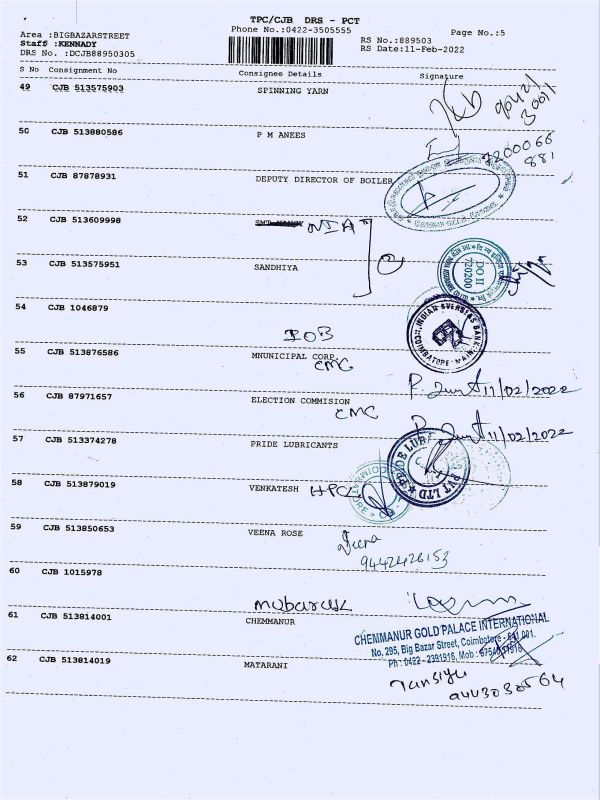 TPC/CJB DRS - PCT
Phone No.:0422-3505555
Page No.:5
Area :BIGBAZARSTREET
Staff :KENNADY
DRS No. :DCJB88950305
RS No.:889503
RS Date:11-Feb-2022
S No Consignment No Consignee Details Signature
49 CJB 513575903 SPINNING YARN
50 CJB 513880586 P M ANEES
7200066
881
51 CJB 87878931 DEPUTY DIRECTOR OF BOILER
52 CJB 513609998 NIA
53 CJB 513575951 SANDHIYA
DO II
720200
54 CJB 1046879
IOB
INDIAN OVERSEAS BANK
COIMBATORE - MAIN
55 CJB 513876586 MNUNICIPAL CORP.
CMC
11/02/2022
56 CJB 87971657 ELECTION COMMISION
CMC
11/02/2022
57 CJB 513374278 PRIDE LUBRICANTS
PVT LTD
58 CJB 513879019 VENKATESH HPCL
59 CJB 513850653 VEENA ROSE
Veena
9442426153
60 CJB 1015978
Mubarak
61 CJB 513814001 CHEMMANUR
CHEMMANUR GOLD PALACE INTERNATIONAL
No. 295, Big Bazar Street, Coimbatore - 641 001.
Ph : 0422 - 2391916, Mob :
62 CJB 513814019 MATARANI
9443030564